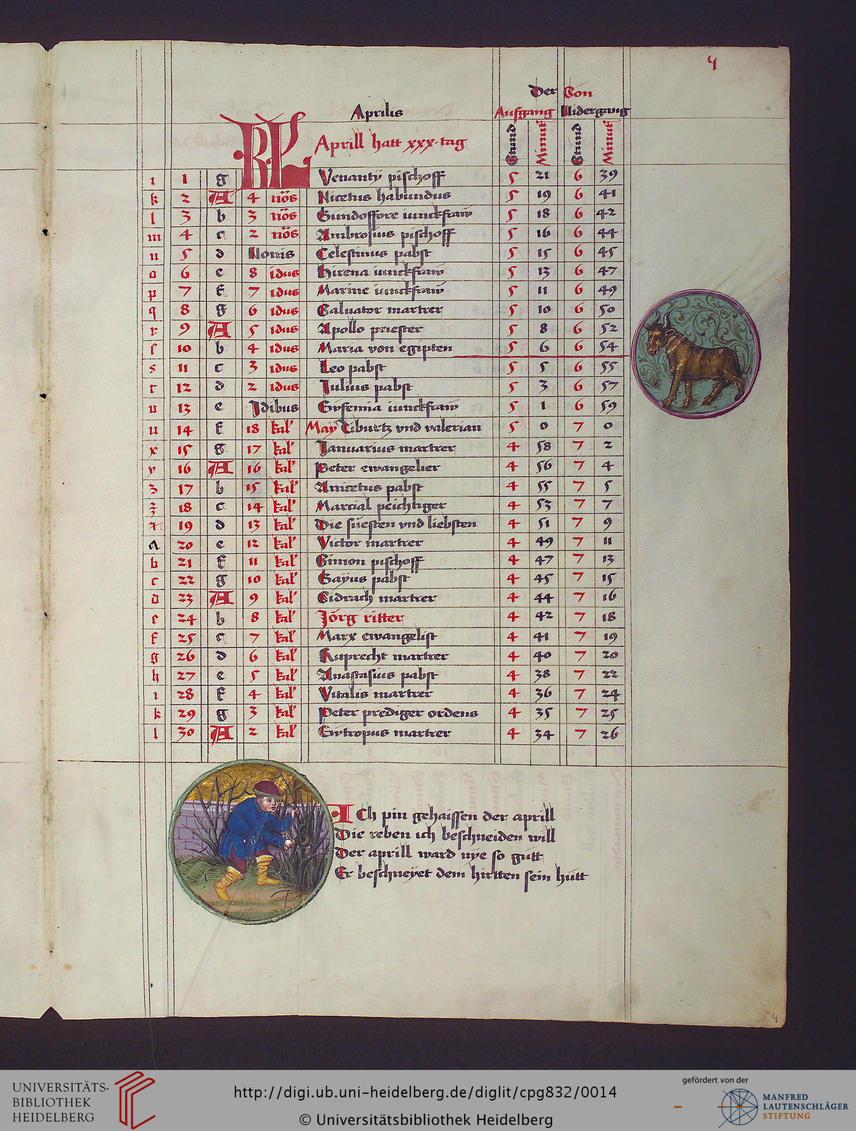 4
Der Son
Aprilis Aufgang Nidergang
KL Aprill hatt xxx tag Stund Minut Stund Minut
1 1 g Venanty pischoff 5 21 6 39
k 2 A 4 nōs Nicetus habundus 5 19 6 41
l 3 b 3 nōs Gundoffore iunckfraw 5 18 6 42
m 4 c 2 nōs Ambrosius pischoff 5 16 6 44
n 5 d Nonis Celestinus pabst 5 15 6 45
o 6 e 8 idus Hirena iunckfraw 5 13 6 47
p 7 f 7 idus Marine iunckfraw 5 11 6 49
q 8 g 6 idus Saluator martrer 5 10 6 50
r 9 A 5 idus Apollo priester 5 8 6 52
ſ 10 b 4 idus Maria von egipten 5 6 6 54
s 11 c 3 idus Leo pabst 5 5 6 55
t 12 d 2 idus Julius pabst 5 3 6 57
v 13 e Idibus Eufemia iunckfraw 5 1 6 59
u 14 f 18 kal' May Tiburtz vnd valerian 5 0 7 0
x 15 g 17 kal' Januarius martrer 4 58 7 2
y 16 A 16 kal' Peter ewangelier 4 56 7 4
z 17 b 15 kal' Anicetus pabst 4 55 7 5
18 c 14 kal' Marcial peichtiger 4 53 7 7
19 d 13 kal' Die süesten vnd liebsten 4 51 7 9
A 20 e 12 kal' Victor martrer 4 49 7 11
b 21 f 11 kal' Simon pischoff 4 47 7 13
c 22 g 10 kal' Gayus pabst 4 45 7 15
d 23 A 9 kal' Sidrach martrer 4 44 7 16
e 24 b 8 kal' Jörg ritter 4 42 7 18
f 25 c 7 kal' Marx ewangelist 4 41 7 19
g 26 d 6 kal' Ruprecht martrer 4 40 7 20
h 27 e 5 kal' Anastasius pabst 4 38 7 22
i 28 f 4 kal' Vitalis martrer 4 36 7 24
k 29 g 3 kal' Peter prediger ordens 4 35 7 25
l 30 A 2 kal' Eytropus martrer 4 34 7 26
Ich pin gehaissen der aprill
Die reben ich beschneiden will
Der aprill ward nye so gutt
Er beschneyet dem hirtten sein hutt
4
UNIVERSITÄTS-
BIBLIOTHEK
HEIDELBERG
http://digi.ub.uni-heidelberg.de/diglit/cpg832/0014
© Universitätsbibliothek Heidelberg
gefördert von der
MANFRED
LAUTENSCHLÄGER
STIFTUNG